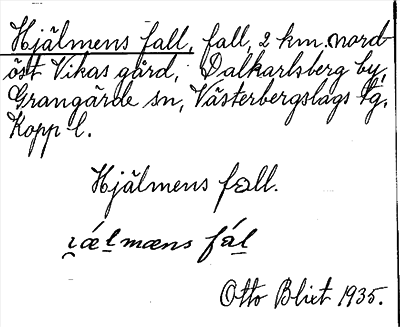 Hjälmens fall, fall, 2 km. nord-
öst Vikas gård, Dalkarlsberg by,
Grangärde sn, Västerbergslags tg.
Kopp l.
Hjälmens fall.
i̯ǽl̲mæns fál̲
Otto Blixt 1935.